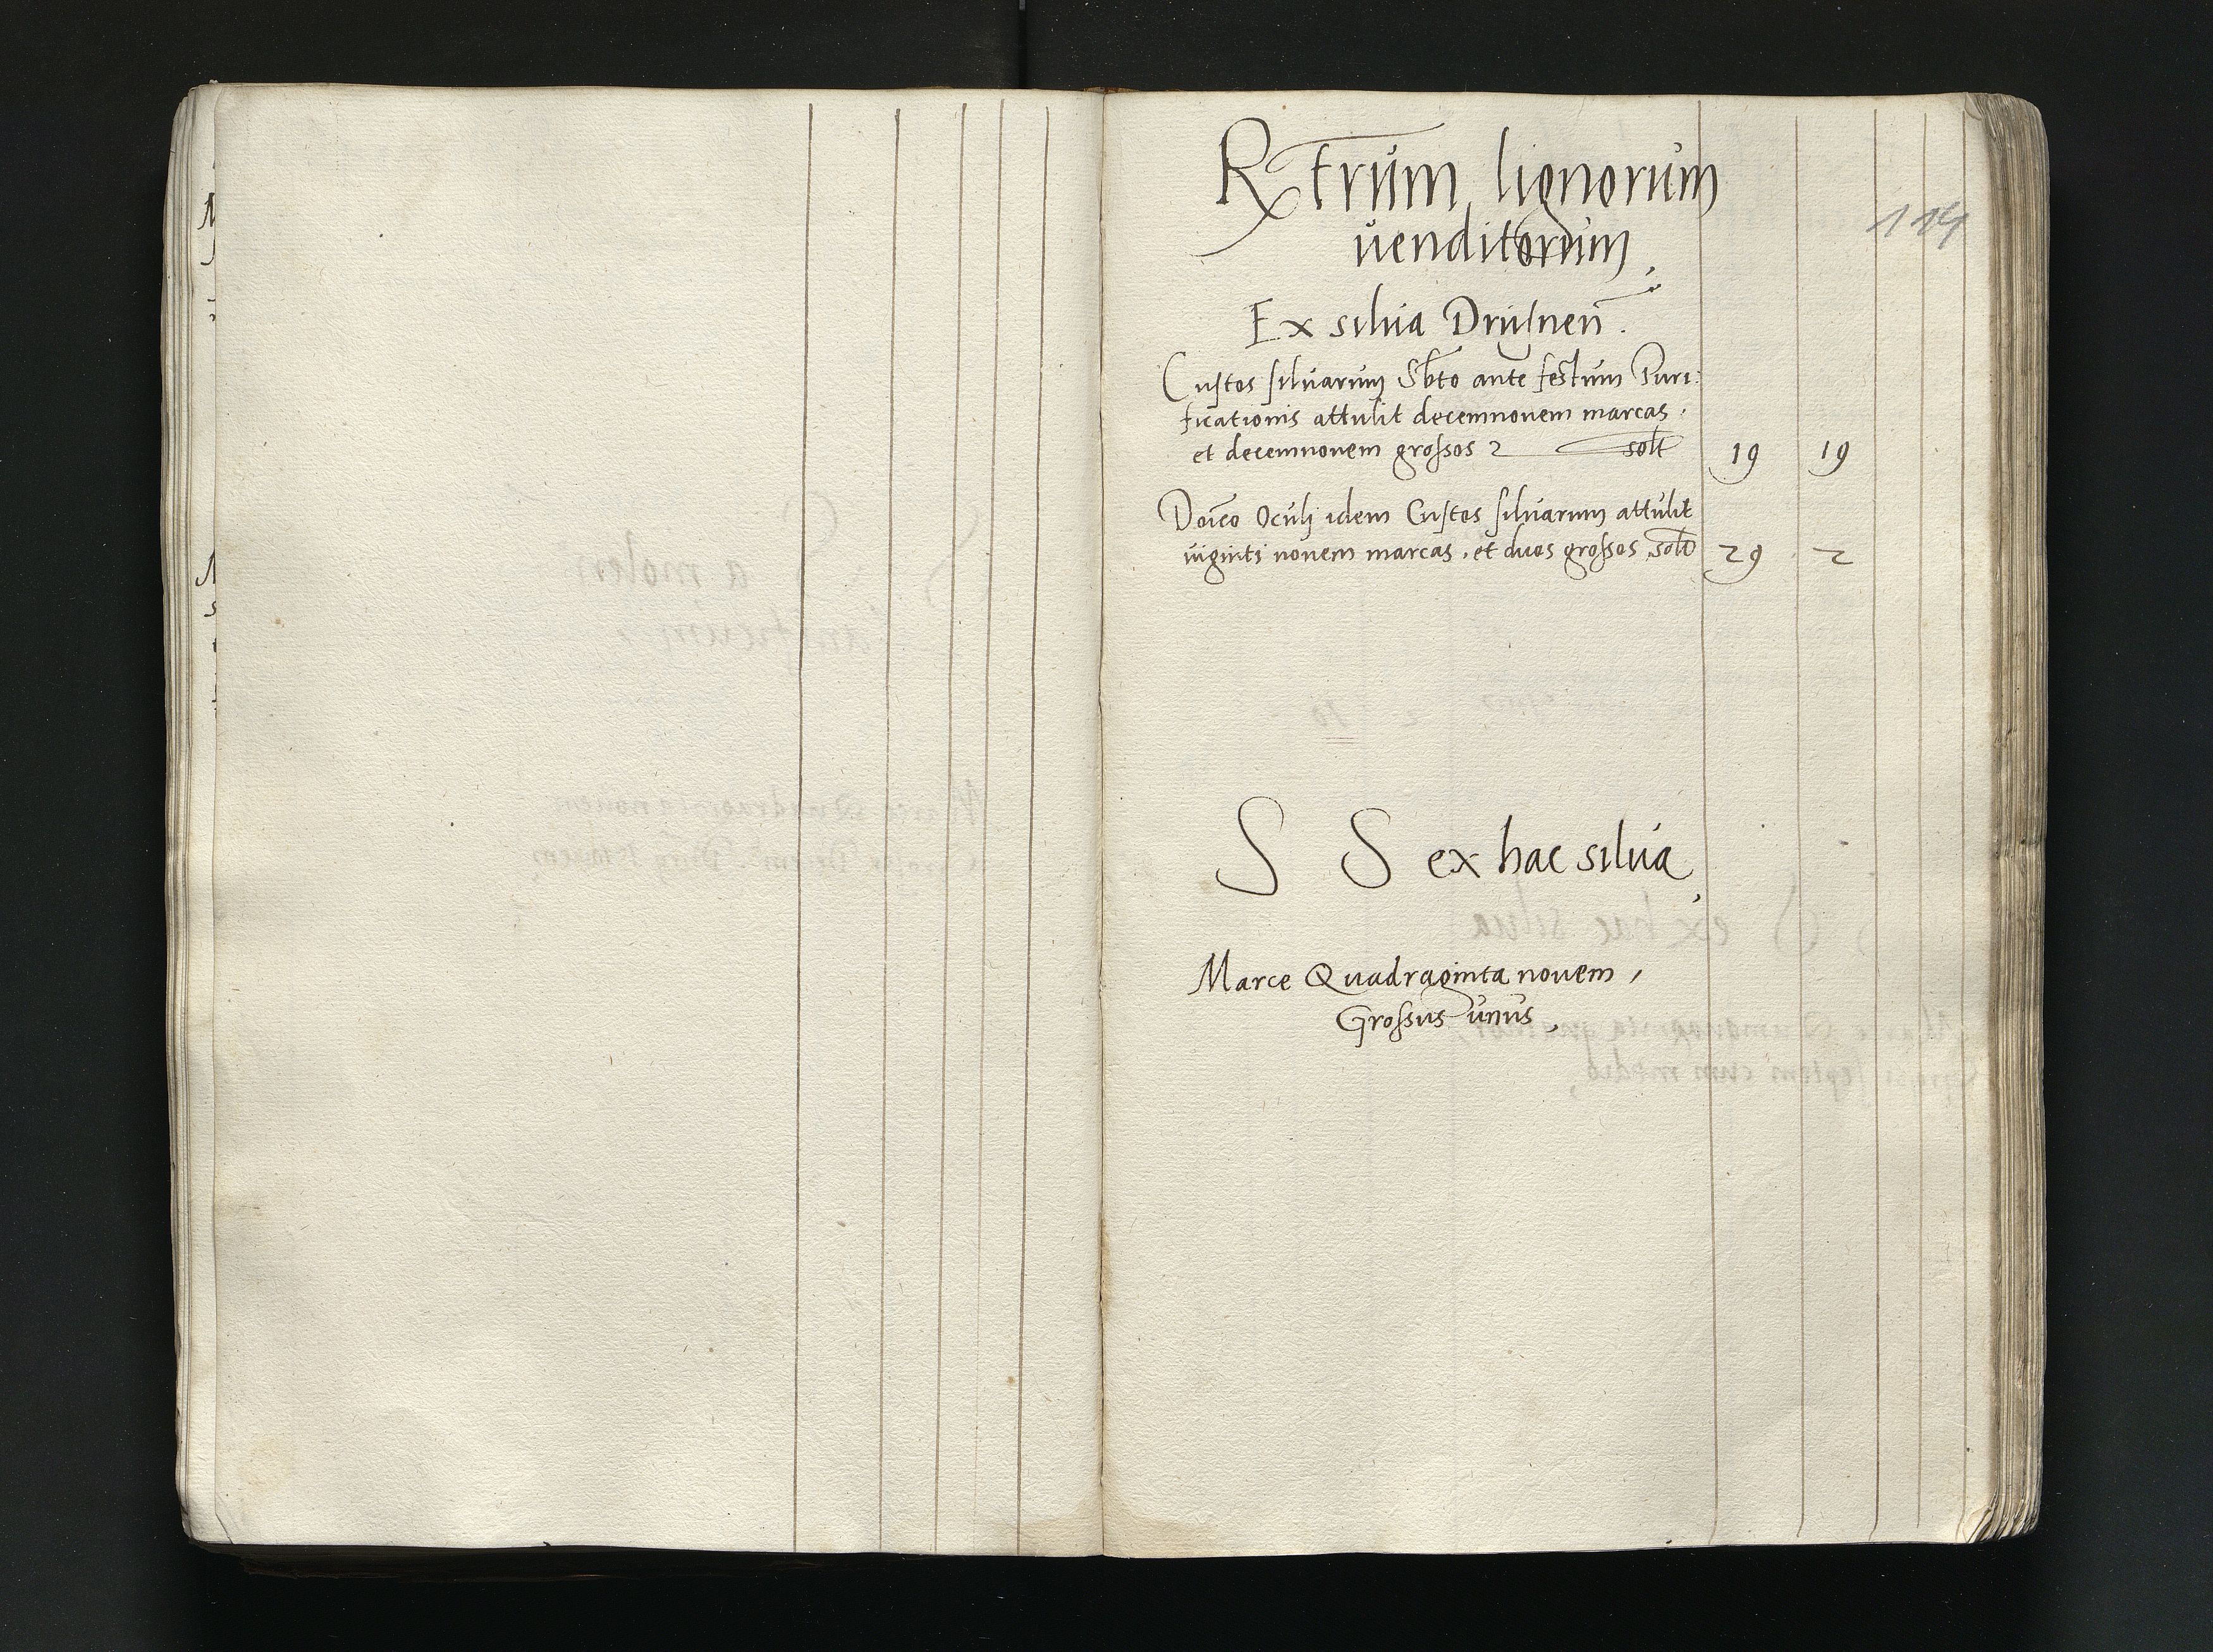 Rtrum lignorum
uenditorum
114
Ex silua Drusnen̄.
Custos siluarum Sbto ante festum Puri:
ficationis attulit decemnouem marcas,
et decemnouem grossos 2 solt 19 19
Doīco Oculj idem Custos siluarum attulit
uiginti nouem marcas, et duos grossos, solt 29 2
S S ex hac silua,
Marce Quadraginta novem,
Grossus unus,